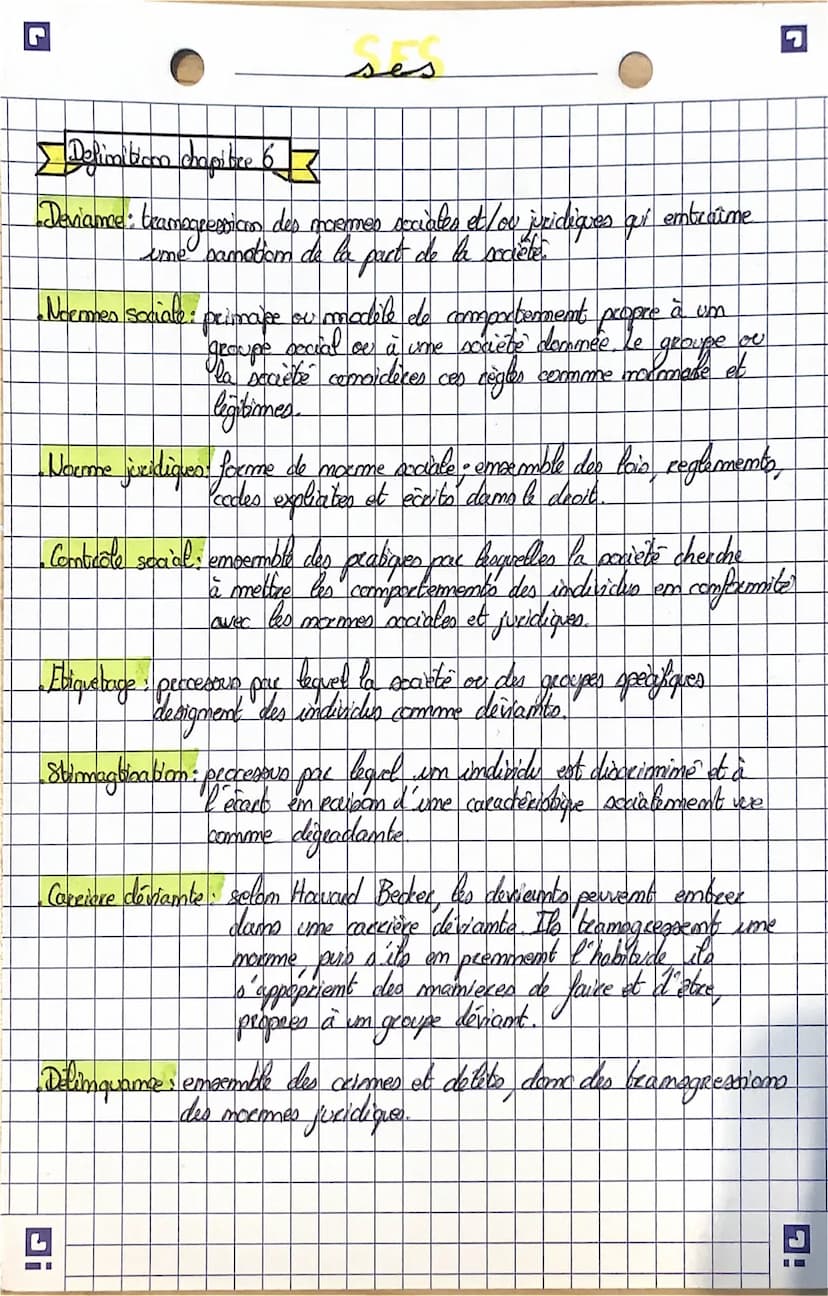 SES
ses
Definition chapitre 6
.Deviance : transgression des normes sociales et/ou juridiques qui entraîne
une sanction de la part de la société.
.Normes sociale : ou modèle de comportement propre à un
groupe social ou à une société donnée. Le groupe ou
la société considères ces règles comme normale et
légitimes.
.Norme juridiques : forme de norme sociale ; ensemble des lois, reglements,
codes explicites et écrits dans le droit.
.Contrôle social : ensemble des pratiques par lesquelles la société cherche
à mettre les comportements des individus en conformité
avec les normes sociales et juridiques.
.Etiquetage : percessus par lequel la société ou des groupes spécifiques
designent des individus comme déviants.
.Stimagtisation : precessus par lequel un individu est discriminé et à
l'écart en raison d'une caractéristique socialement vue
comme dégradante.
.Carriere déviante : selon Howard Becker, les devients peuvent entrer
dans une carrière déviante. Ils transgressent une
norme, puis s'ils en prennent l'habitude, ils
s'appoprient des manieres de faire et d'être,
propres à un groupe déviant.
.Délinquance : ensemble des crimes et délits, donc des transgressions
des normes juridiques.